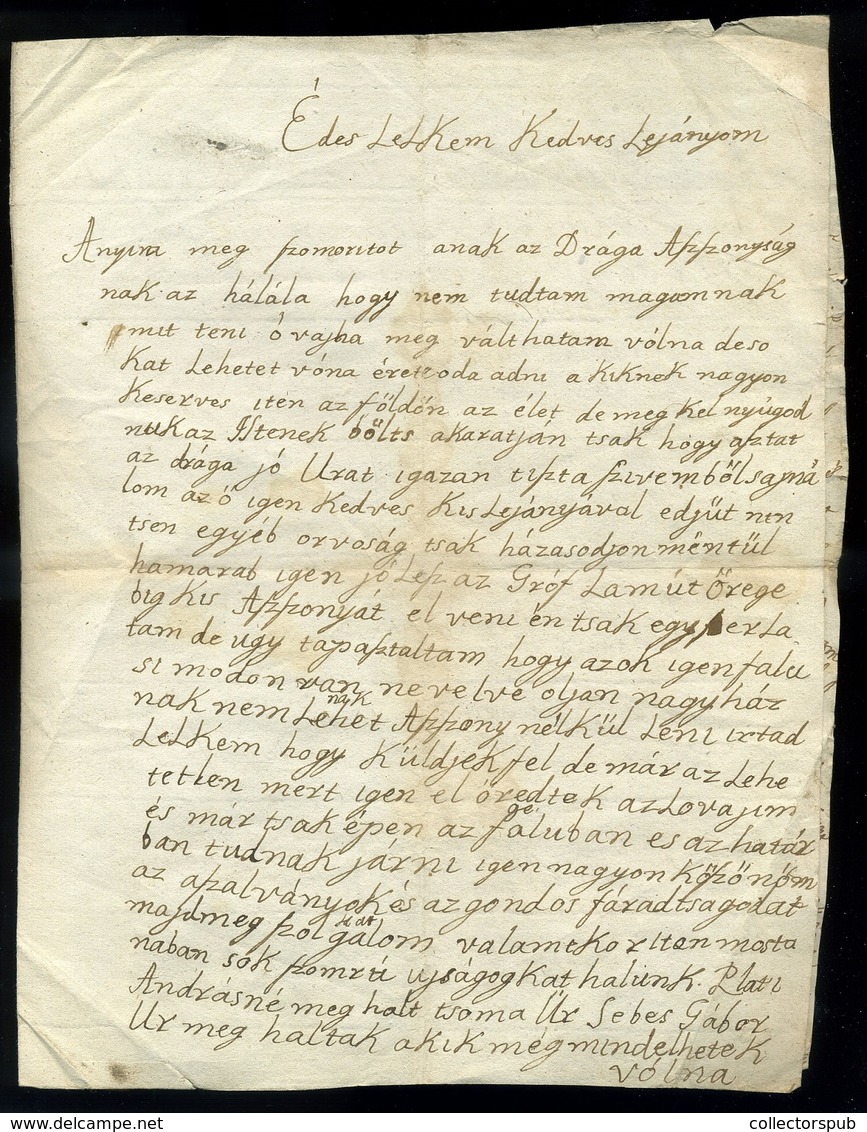 Édes LeLKem Kedves Lejányom
Anyira meg szomoritot anak az Drága Aszszonyság
nak az hálála hogy nem tudtam magomnak
mit teni ő vajha meg válthatam vólna deso
Kat Lehetet vóna érette oda adni a KiKneK nagyon
Keserves iten az földőn az élet de meg Kel nyúgod
nuK az Istenek bőlts akaratján tsak hogy aztat
az drága jó Urat igazan tiszta szivemből sajná
lom az ő igen Kedves Kis Lejányával edjüt nin
tsen egyéb orvoság tsak házasodjon mentül
hamarab igen jó Lesz az Gróf Lamút Őrege
big Kis Aszszonyát el veni én tsak egyszer La
tam de ugy tapasztaltam hogy azok igen falu
si modon vannak nevelve oljan nagy ház
nak nem Lehet Aszszony nélKül Leni irtad
LeLKem hogy KüldjeK fel de már az Lehe
tetlen mert igen el őredteK az Lovajim
és már tsak épen az faluban es az határ
ban tudnak járni igen nagyon Kőzőnőm
az aszalványoK és az gondos fáradtsagodat
majd meg szolgálom valamikor iten mosta
nában soK szomrú ujságogKat halunk. Plati
Andrásné meg halt tsoma Ür Sebes Gábor
Ur meg haltak aKiK még mindelhetek
vólna
collectorspub